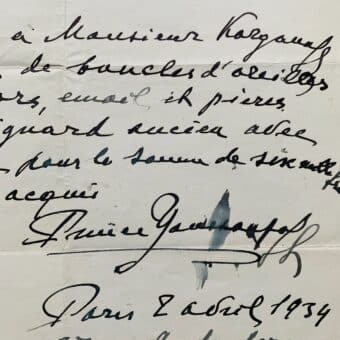 à Monsieur Korganoff
de boucles d'oreilles
ors, email et pieres
ignard ancien avec
pour le somme de six mille
acquis
Prince Youssoupoff
Paris 2 avril, 1934